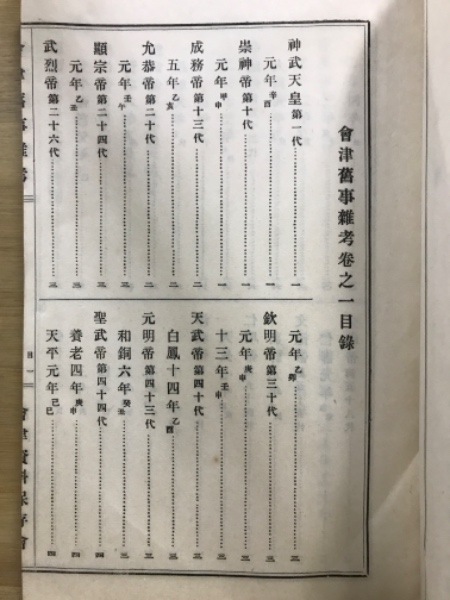 會津舊事雜考卷之一目錄
神武天皇第一代……一
元年辛酉……一
崇神帝第十代……一
元年甲申……一
成務帝第十三代……二
五年乙亥……二
允恭帝第二十代……二
元年壬午……二
顯宗帝第二十四代……三
元年乙丑……三
武烈帝第二十六代……三
元年乙卯……三
欽明帝第三十代……三
元年庚申……三
十三年壬申……三
天武帝第四十代……三
白鳳十四年乙酉……三
元明帝第四十三代……三
和銅六年癸丑……三
聖武帝第四十四代……四
養老四年庚申……四
天平元年己巳……四
會津舊事雜考
目一
會津資料保存會